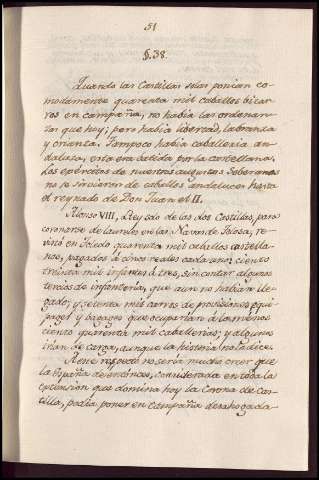 51
§. 38.
Quando las Castillas solas ponian co-
modamente quarenta mil caballos bizar-
ros en campaña, no habia las ordenan-
zas que hoy; pero habia libertad, labranza
y crianza. Tampoco habia caballeria an-
daluza, esta era batida por la castellana.
Los exércitos de nuestros augustos Soberanos
no se sirvieron de caballos andaluces hasta
el reynado de Don Juan el II.
Alonso VIII, Rey solo de las dos Castillas, para
coronarse de laureles en las Navas de Tolosa, re-
vistó en Toledo quarenta mil caballos castella-
nos, pagados á cinco reales cada uno; ciento
treinta mil infantes á tres, sin contar algunos
tercios de infanteria, que aun no habian lle-
gado; y setenta mil carros de provisiones equi-
pages y bagages que ocuparian á lo menos
ciento quarenta mil caballerias; y algunas
irian de carga, aunque la historia no lo dice.
A ese respecto no seria mucho creer que
la España de entónces, considerada en toda la
extension que domina hoy la Corona de Cas-
tilla, podia poner en campaña desahogada-